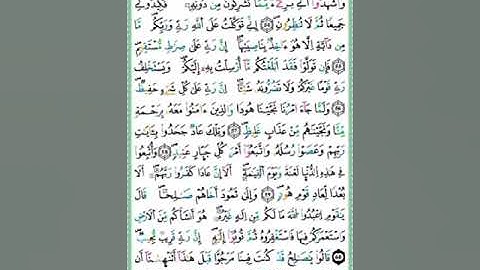 وَاشْهَدُوٓا أَنِّى بَرِىٓءٌ مِّمَّا تُشْرِكُونَ مِن دُونِهِۦ ۖ فَكِيدُونِى
جَمِيعًا ثُمَّ لَا تُنظِرُونِ ۝٥٥ إِنِّى تَوَكَّلْتُ عَلَى اللَّهِ رَبِّى وَرَبِّكُم ۚ مَّا
مِن دَآبَّةٍ إِلَّا هُوَ ءَاخِذٌۢ بِنَاصِيَتِهَآ ۚ إِنَّ رَبِّى عَلَىٰ صِرَٰطٍ مُّسْتَقِيمٍ
۝٥٦ فَإِن تَوَلَّوْا فَقَدْ أَبْلَغْتُكُم مَّآ أُرْسِلْتُ بِهِۦٓ إِلَيْكُمْ ۚ وَيَسْتَخْلِفُ
رَبِّى قَوْمًا غَيْرَكُمْ وَلَا تَضُرُّونَهُۥ شَيْـًٔا ۚ إِنَّ رَبِّى عَلَىٰ كُلِّ شَىْءٍ حَفِيظٌ
۝٥٧ وَلَمَّا جَآءَ أَمْرُنَا نَجَّيْنَا هُودًا وَالَّذِينَ ءَامَنُوا مَعَهُۥ بِرَحْمَةٍ
مِّنَّا وَنَجَّيْنَٰهُم مِّنْ عَذَابٍ غَلِيظٍ ۝٥٨ وَتِلْكَ عَادٌ ۖ جَحَدُوا بِـَٔايَٰتِ
رَبِّهِمْ وَعَصَوْا رُسُلَهُۥ وَاتَّبَعُوٓا أَمْرَ كُلِّ جَبَّارٍ عَنِيدٍ ۝٥٩ وَأُتْبِعُوا
فِى هَٰذِهِ الدُّنْيَا لَعْنَةً وَيَوْمَ الْقِيَٰمَةِ ۗ أَلَآ إِنَّ عَادًا كَفَرُوا رَبَّهُمْ ۗ أَلَا
بُعْدًا لِّعَادٍ قَوْمِ هُودٍ ۝٦٠ وَإِلَىٰ ثَمُودَ أَخَاهُمْ صَٰلِحًا ۚ قَالَ
يَٰقَوْمِ اعْبُدُوا اللَّهَ مَا لَكُم مِّنْ إِلَٰهٍ غَيْرُهُۥ ۖ هُوَ أَنشَأَكُم مِّنَ الْأَرْضِ
وَاسْتَعْمَرَكُمْ فِيهَا فَاسْتَغْفِرُوهُ ثُمَّ تُوبُوٓا إِلَيْهِ ۚ إِنَّ رَبِّى قَرِيبٌ مُّجِيبٌ
۝٦١ قَالُوا يَٰصَٰلِحُ قَدْ كُنتَ فِينَا مَرْجُوًّا قَبْلَ هَٰذَآ ۖ أَتَنْهَىٰنَآ أَن